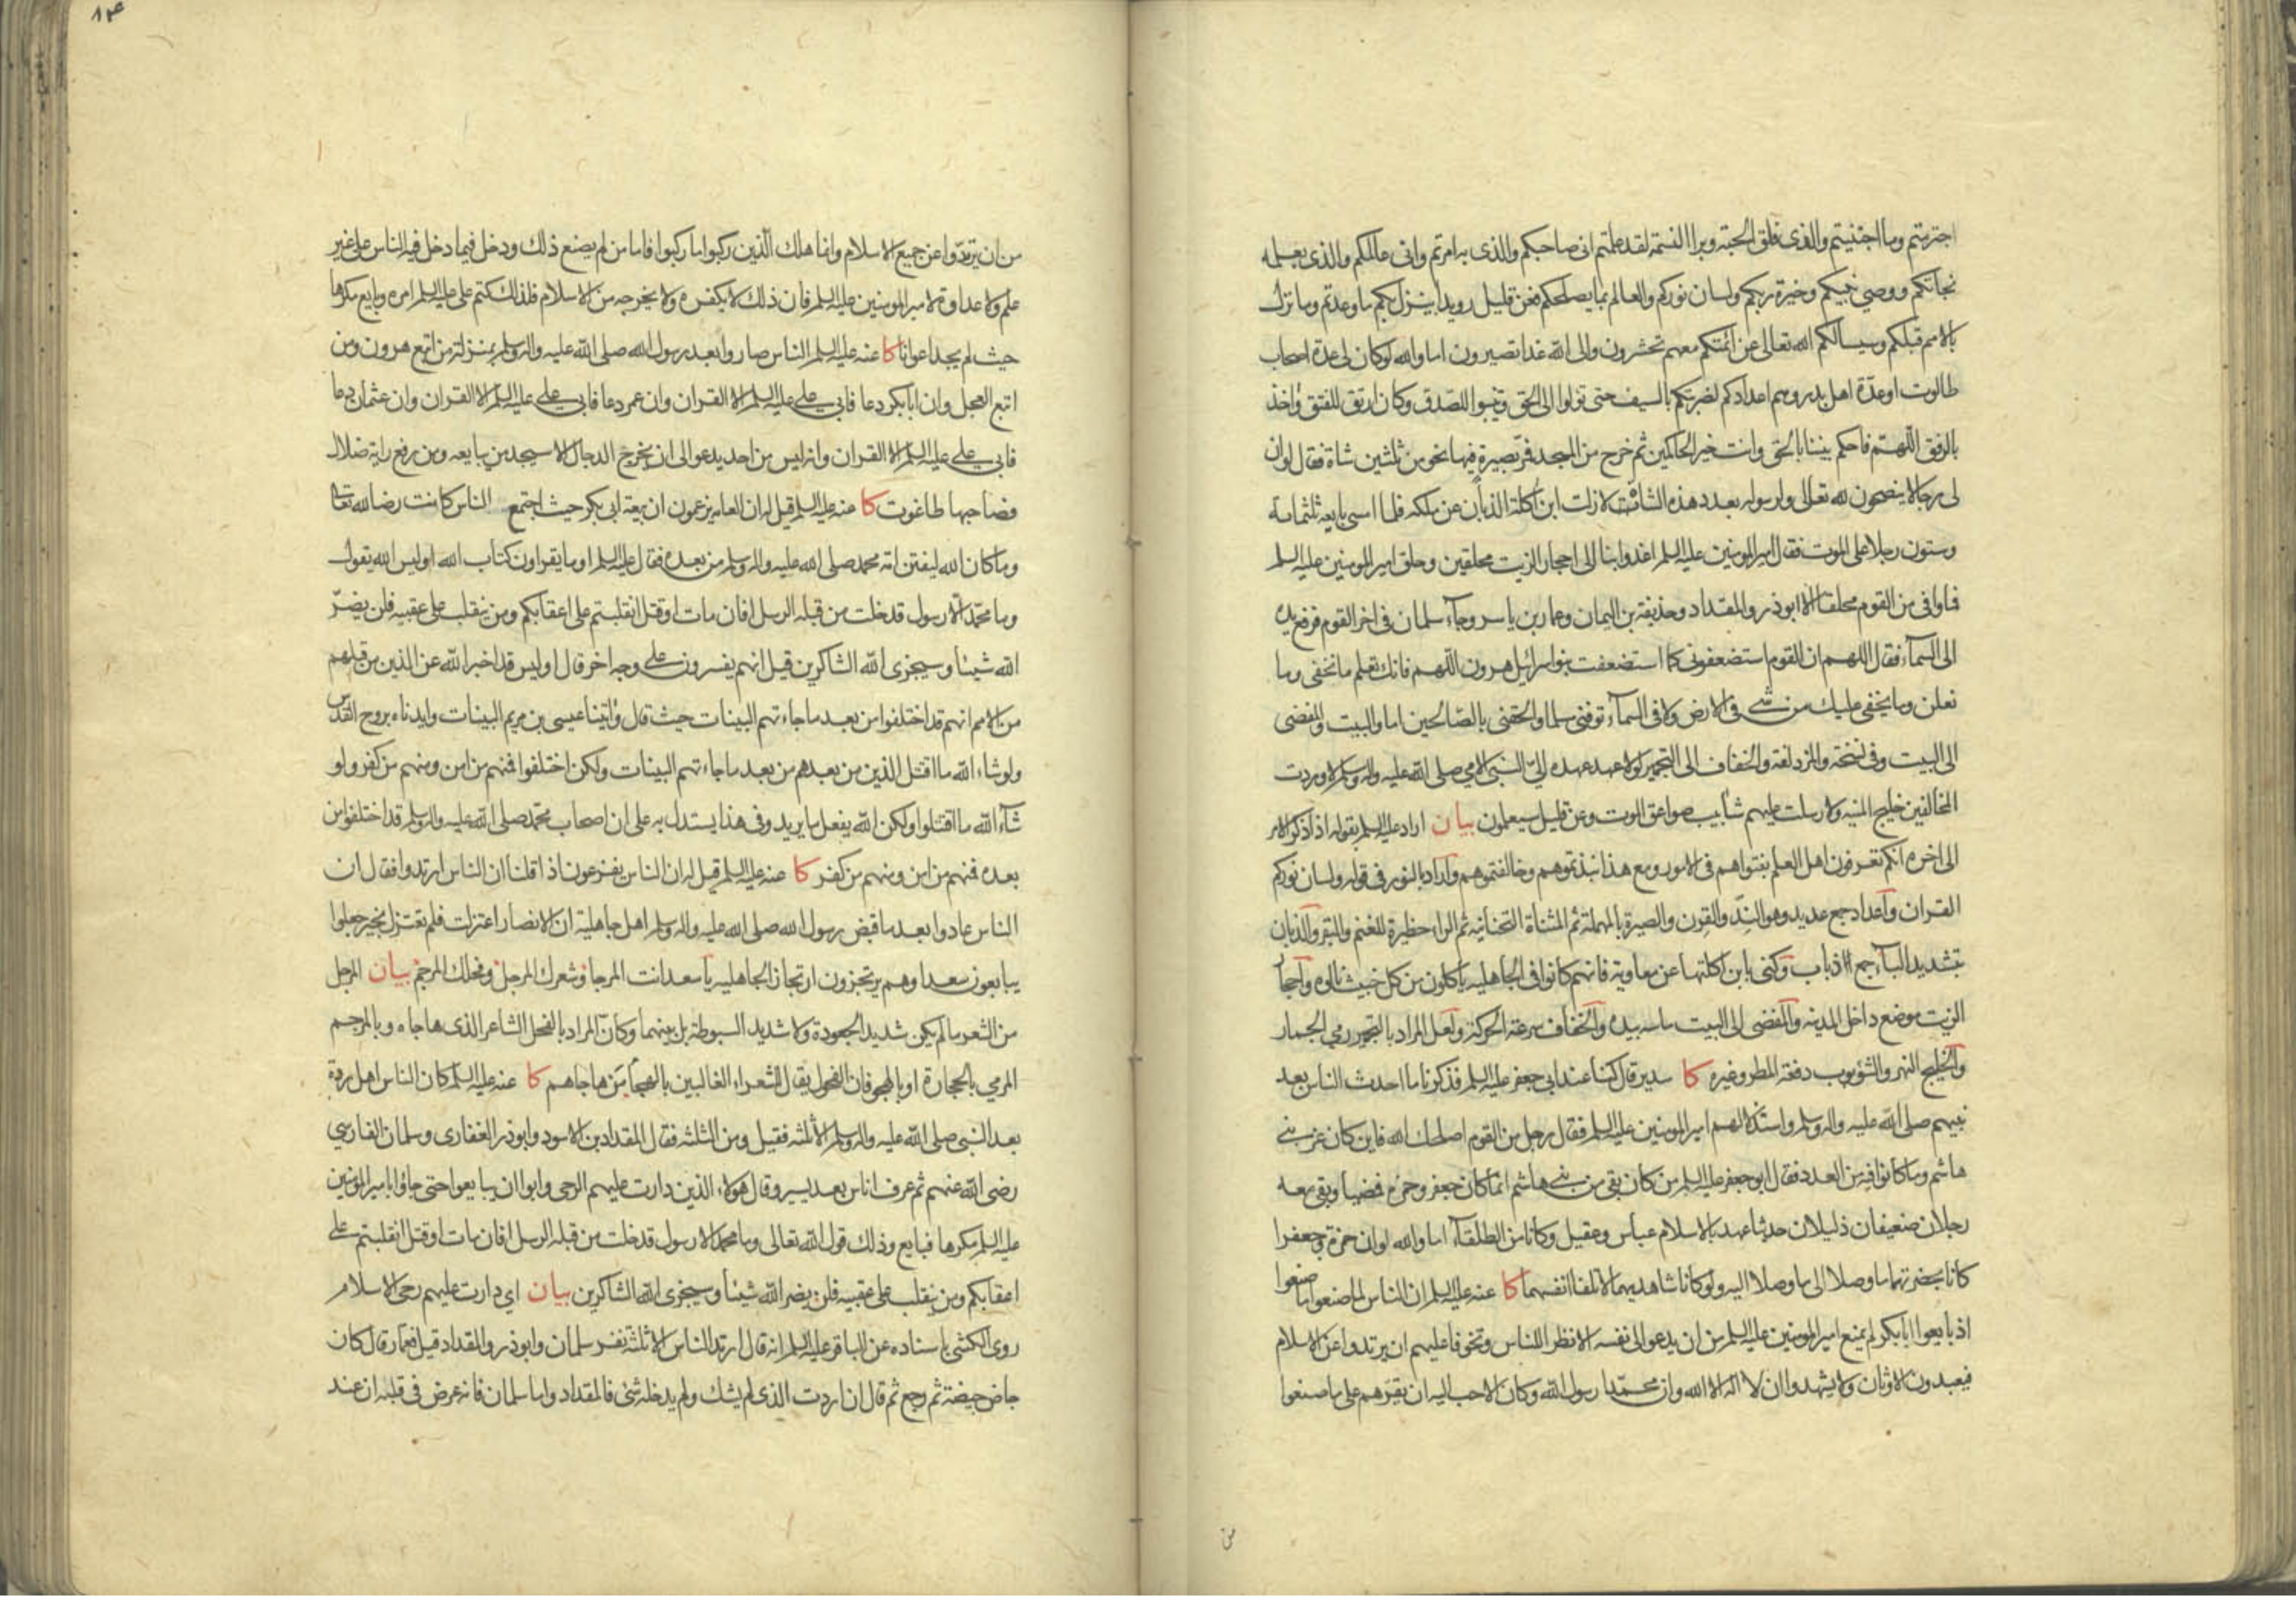 اجترمتم وما اجتنيتم والذى فلق الحبة وبرا النسمة لقد علمتم انى صاحبكم والذى به امرتم وانى عالمكم والذى بعلمه
نجاتكم ووصي نبيكم وخيرة ربكم ولسان نوركم والعالم بما يصلحكم فعن قليل رويدا ينزل بكم ما وعدتم وما نزل
بالامم قبلكم وسيسالكم الله تعالى عن ائمتكم معهم تحشرون والى الله غدا تصيرون اما والله لو كان لى عدة اصحاب
طالوت او عدة اهل بدر وهم اعدادكم لضربتكم بالسيف حتى تولوا الى الحق وتنيبوا للصدق وكان ارتق للفتق واخذ
بالرفق اللهم فاحكم بيننا بالحق وانت خير الحاكمين ثم خرج من المسجد فمر بصيرة فيها نحو من ثلثين شاة فقال لو ان
لى رجالا ينصحون لله تعالى ولرسوله بعدد هذه الشاة لازلت ابن اكلة الذبان عن ملكه فلما امسى بايعه ثلثمائة
وستون رجلا على الموت فقال امير المومنين عليه السلم اغدوا بنا الى احجار الزيت محلقين وحلق امير المومنين عليه السلم
فما وافى من القوم محلقا الا ابوذر والمقداد وحذيفة بن اليمان وعمار بن ياسر وجاء سلمان فى اخر القوم فرفع يده
الى السماء فقال اللهم ان القوم استضعفونى كما استضعفت بنو اسرائيل هرون اللهم فانك تعلم ما نخفى وما
نعلن وما يخفى عليك من شيء فى الارض ولا فى السماء توفنى مسلما والحقنى بالصالحين اما والبيت والمفضى
الى البيت وفى نسخة والمزدلفة والخفاف الى التجمير لولا عهد عهده الىّ النبى الامي صلى الله عليه واله وسلم لاوردت
المخالفين خليج المنية ولارسلت عليهم شآبيب صواعق الموت وعن قليل سيعلمون بيان اراد عليه السلم بقوله اذا ذكر الامر
الى اخره انكم تعرفون اهل العلم بفتواهم فى الامور ومع هذا نبذتموهم وخالفتموهم واراد بالنور فى قوله ولسان نوركم
القران واعداد جمع عديد وهو الندّ والقرن والصيرة بالمهملة ثم المثناة التحتانية ثم الراء حظيرة للغنم والبقر والذبان
بتشديد الباء جمع الذباب وكنى بابن اكلتها عن معاوية فانهم كانوا فى الجاهلية ياكلون من كل خبيث نالوه واحجار
الزيت موضع داخل المدينة والمفضى الى البيت ماسه بيده والخفاف سرعة الحركة ولعل المراد بالتجمير رمي الجمار
والخليج النهر والشؤبوب دفعة المطر وغيره كا سدير قال كنا عند ابي جعفر عليه السلم فذكرنا ما احدث الناس بعد
نبيهم صلى الله عليه واله وسلم واستذلالهم امير المومنين عليه السلم فقال رجل من القوم اصلحك الله فاين كان عز بني
هاشم وما كانوا فيه من العدد فقال ابو جعفر عليه السلم من كان بقى من بني هاشم انما كان جعفر وحمزة فمضيا وبقى معه
رجلان ضعيفان ذليلان حديثا عهد بالاسلام عباس وعقيل وكانا من الطلقاء اما والله لو ان حمزة وجعفرا
كانا بحضرتهما ما وصلا الى ما وصلا اليه ولو كانا شاهديهما لاتلفا انفسهما كا عنه عليه السلم ان الناس لما صنعوا ما صنعوا
اذ بايعوا ابابكر لم يمنع امير المومنين عليه السلم من ان يدعو الى نفسه الا نظرا للناس وتخوفا عليهم ان يرتدوا عن الاسلام
فيعبدون الاوثان ولا يشهدوا ان لا اله الا الله وان محمدا رسول الله وكان الاحب اليه ان يقرهم على ما صنعوا
من
٨٣
من ان يرتدوا عن جميع الاسلام وانما هلك الذين ركبوا ما ركبوا فاما من لم يصنع ذلك ودخل فيما دخل فيه الناس على غير
علم ولا عداوة لامير المومنين عليه السلم فان ذلك لا يكفره ولا يخرجه من الاسلام فلذلك كتم على عليه السلم امره وبايع مكرها
حيث لم يجد اعوانا كا عنه عليه السلم الناس صاروا بعد رسول الله صلى الله عليه واله وسلم بمنزلة من اتبع هرون ومن
اتبع العجل وان ابابكر دعا فابى علي عليه السلم الا القران وان عمر دعا فابى علي عليه السلم الا القران وان عثمان دعا
فابى علي عليه السلم الا القران وانه ليس من احد يدعو الى ان يخرج الدجال الا سيجد من يبايعه ومن رفع راية ضلال
فصاحبها طاغوت كا عنه عليه السلم قيل له ان العامة يزعمون ان بيعة ابى بكر حيث اجتمع الناس كانت رضا لله تعالى
وما كان الله ليفتن امة محمد صلى الله عليه واله وسلم من بعده فقال عليه السلم اوما يقراون كتاب الله اوليس الله يقول
وما محمد الا رسول قد خلت من قبله الرسل افان مات او قتل انقلبتم على اعقابكم ومن ينقلب على عقبيه فلن يضرّ
الله شيئا وسيجزى الله الشاكرين قيل انهم يفسرون على وجه اخر قال اوليس قد اخبر الله عن الذين من قبلهم
من الامم انهم قد اختلفوا من بعد ما جاءتهم البينات حيث قال واتينا عيسى بن مريم البينات وايدناه بروح القدس
ولو شاء الله ما اقتتل الذين من بعدهم من بعد ما جاءتهم البينات ولكن اختلفوا فمنهم من امن ومنهم من كفر ولو
شاء الله ما اقتتلوا ولكن الله يفعل ما يريد وفى هذا يستدل به على ان اصحاب محمد صلى الله عليه واله وسلم قد اختلفوا من
بعده فمنهم من امن ومنهم من كفر كا عنه عليه السلم قيل له ان الناس يفزعون اذا قلنا ان الناس ارتدوا فقال ان
الناس عادوا بعد ما قبض رسول الله صلى الله عليه واله وسلم اهل جاهلية ان الانصار اعتزلت فلم تعتزل بخير جعلوا
يبايعون سعدا وهم يرتجزون ارتجاز الجاهلية يا سعد انت المرجا وشعرك المرجل وفحلك المرجم بيان المرجل
من الشعر ما لم يكن شديد الجعودة ولا شديد السبوطة بل بينهما وكان المراد بالفحل الشاعر الذى هاجاه وبالمرجم
المرمي بالحجارة او بالهجو فان الفحول يقال للشعراء الغالبين بالهجاء من هاجاهم كا عنه عليه السلم كان الناس اهل ردة
بعد النبى صلى الله عليه واله وسلم الا ثلثه فقيل ومن الثلثه فقال المقداد بن الاسود وابوذر الغفارى وسلمان الفارسي
رضى الله عنهم ثم عرف اناس بعد يسير وقال هولاء الذين دارت عليهم الرحى وابوا ان يبايعوا حتى جاؤا بامير المومنين
عليه السلم مكرها فبايع وذلك قول الله تعالى وما محمد الا رسول قد خلت من قبله الرسل افان مات او قتل انقلبتم على
اعقابكم ومن ينقلب على عقبيه فلن يضر الله شيئا وسيجزى الله الشاكرين بيان اي دارت عليهم رحى الاسلام
روى الكشي باسناده عن الباقر عليه السلم انه قال ارتد الناس الا ثلثة نفر سلمان وابوذر والمقداد قيل فعمار قال كان
جاض جيضة ثم رجع ثم قال ان اردت الذى لم يشك ولم يدخله شئ فالمقداد واما سلمان فانه عرض فى قلبه ان عند